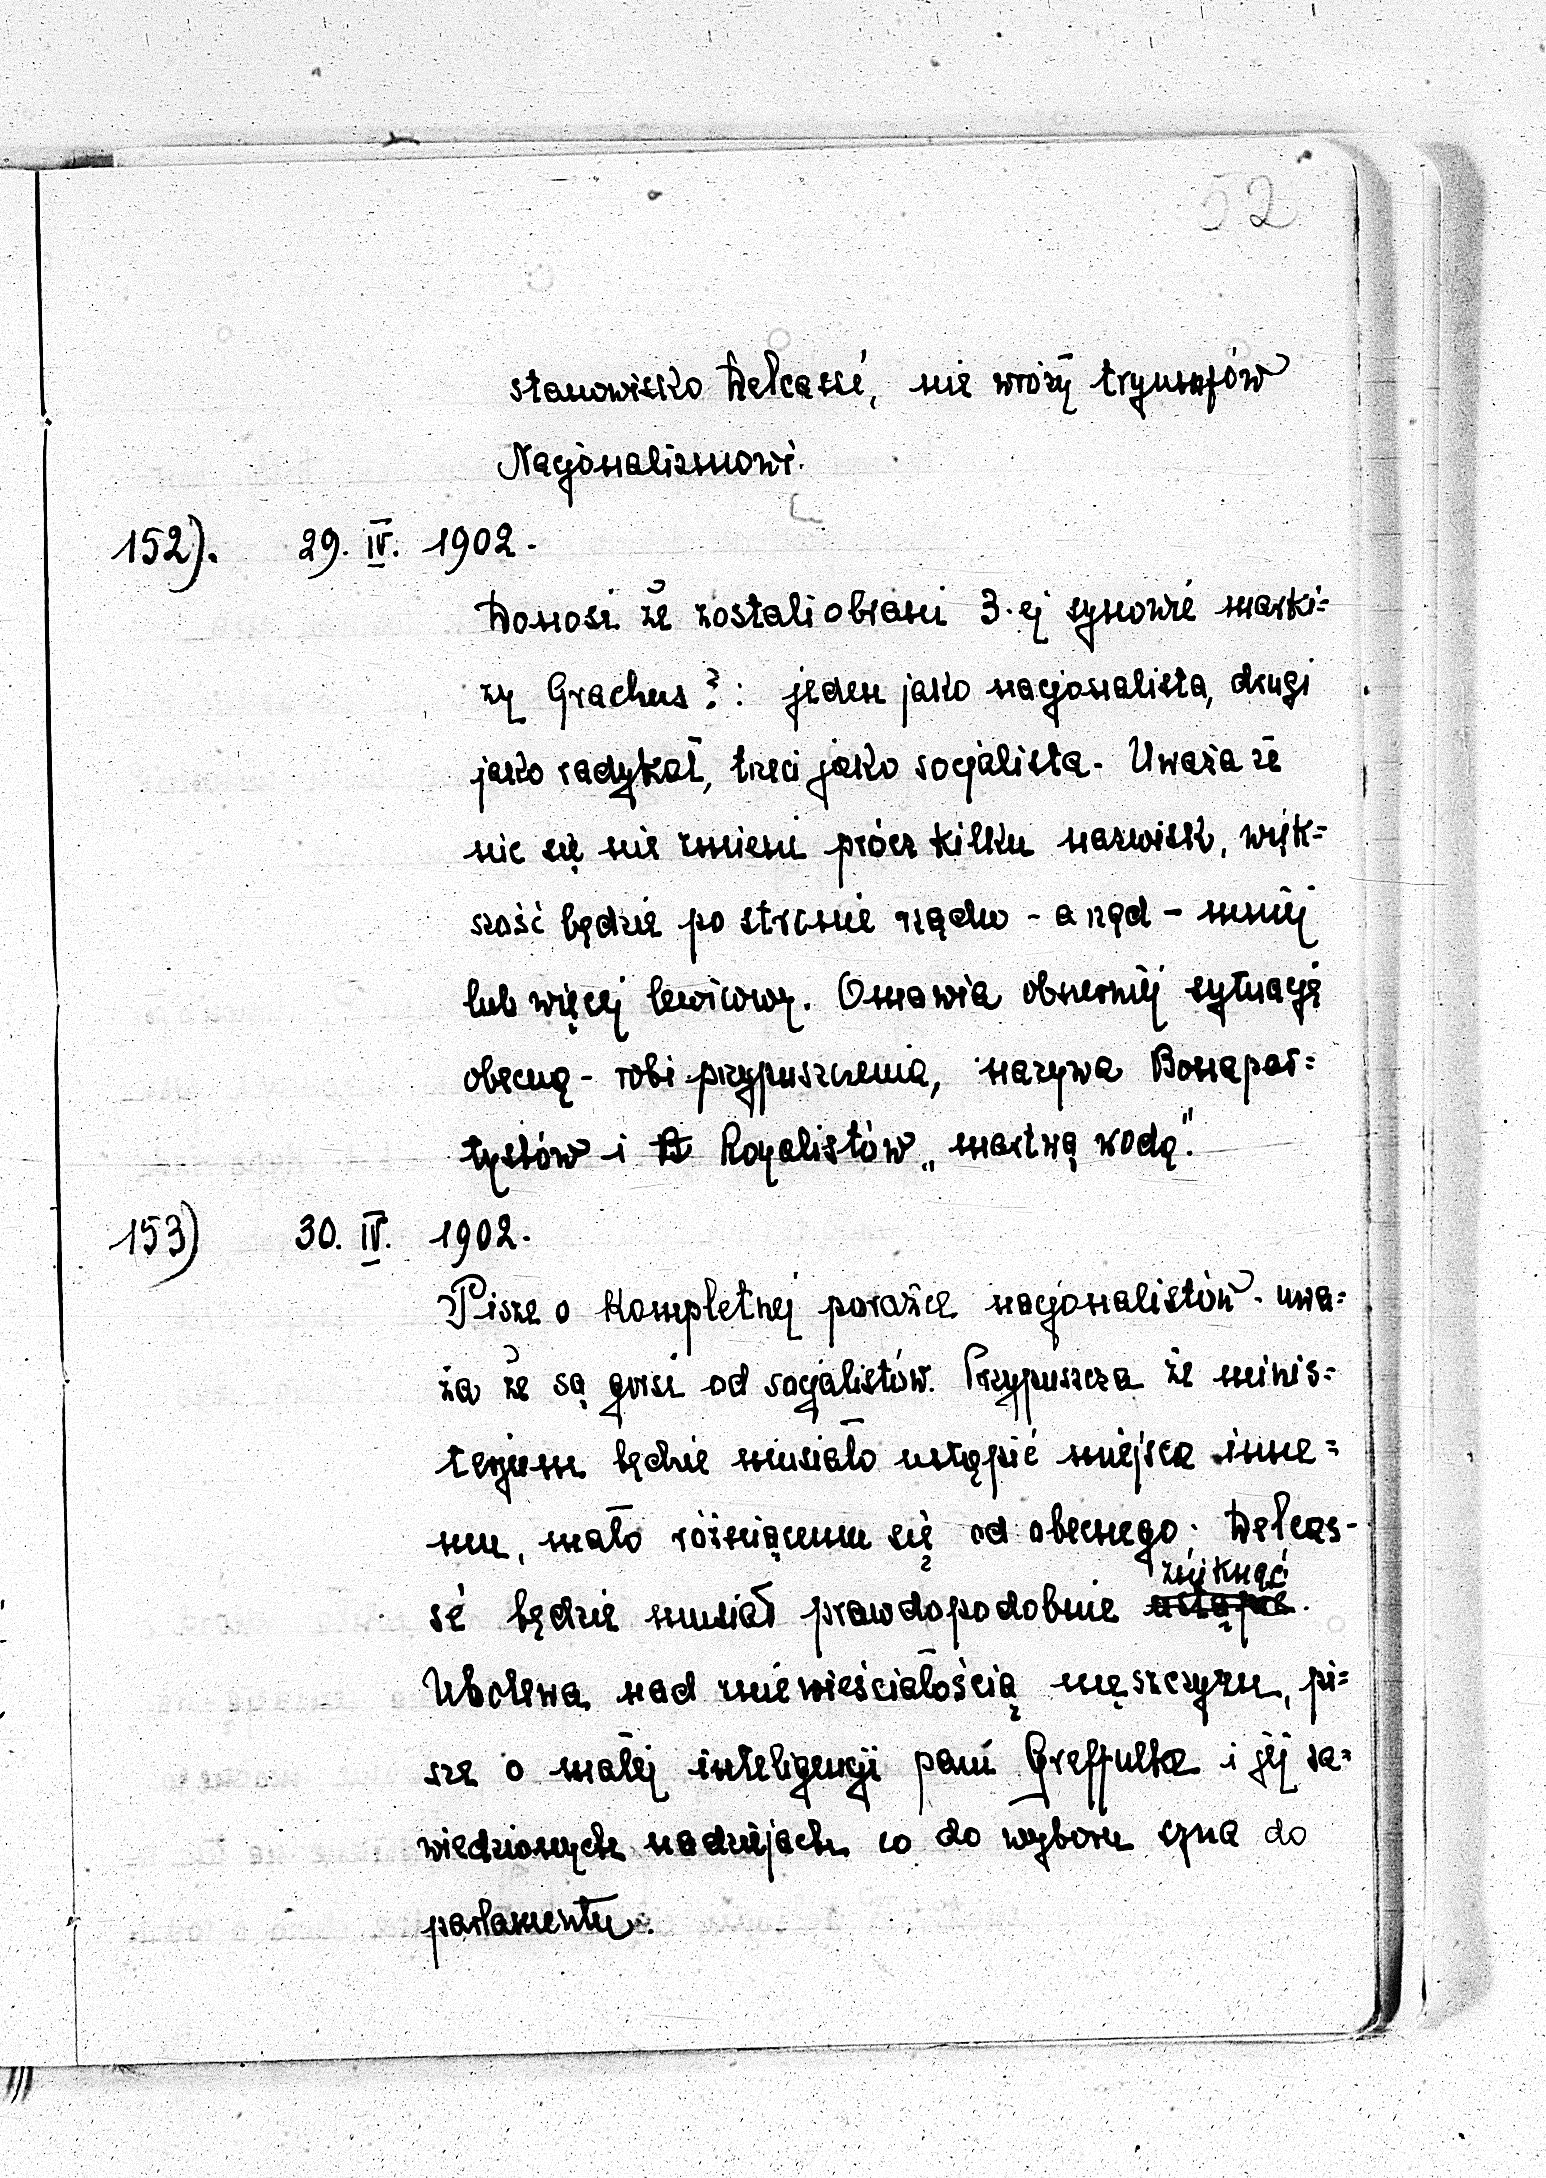 52
stanowisko Delcassé, nie wróży tryumfów
Nacjonalizmowi.
152). 29. IV. 1902.
Donosi że zostali obrani 3-ej synowie marki=
zy Grachus ?: jeden jako nacjonalista, drugi
jako radykał, trzeci jako socjalista. Uważa że
nic się nie zmieni prócz kilku nazwisk, więk=
szość będzie po stronie rządu - a rząd - mniej
lub więcej lewicowy. Omawia obszerniej sytuację
obecną - robi przypuszczenia, nazywa Bonapar=
tystów i Royalistów „martwą wodą".
153) 30. IV. 1902.
Pisze o kompletnej porażce nacjonalistów - uwa=
ża że są gorsi od socjalistów. Przypuszcza że minis=
terjum będzie musiało ustąpić miejsca inne=
mu, mało różniącemu się od obecnego. Delcas-
sé będzie musiał prawdopodobnie ustąpić zniknąć.
Ubolewa nad zniewieściałością męszczyzn, pi=
sze o małej inteligencji pani Greffulhe i jej za=
wiedzionych nadziejach co do wyboru syna do
parlamentu.